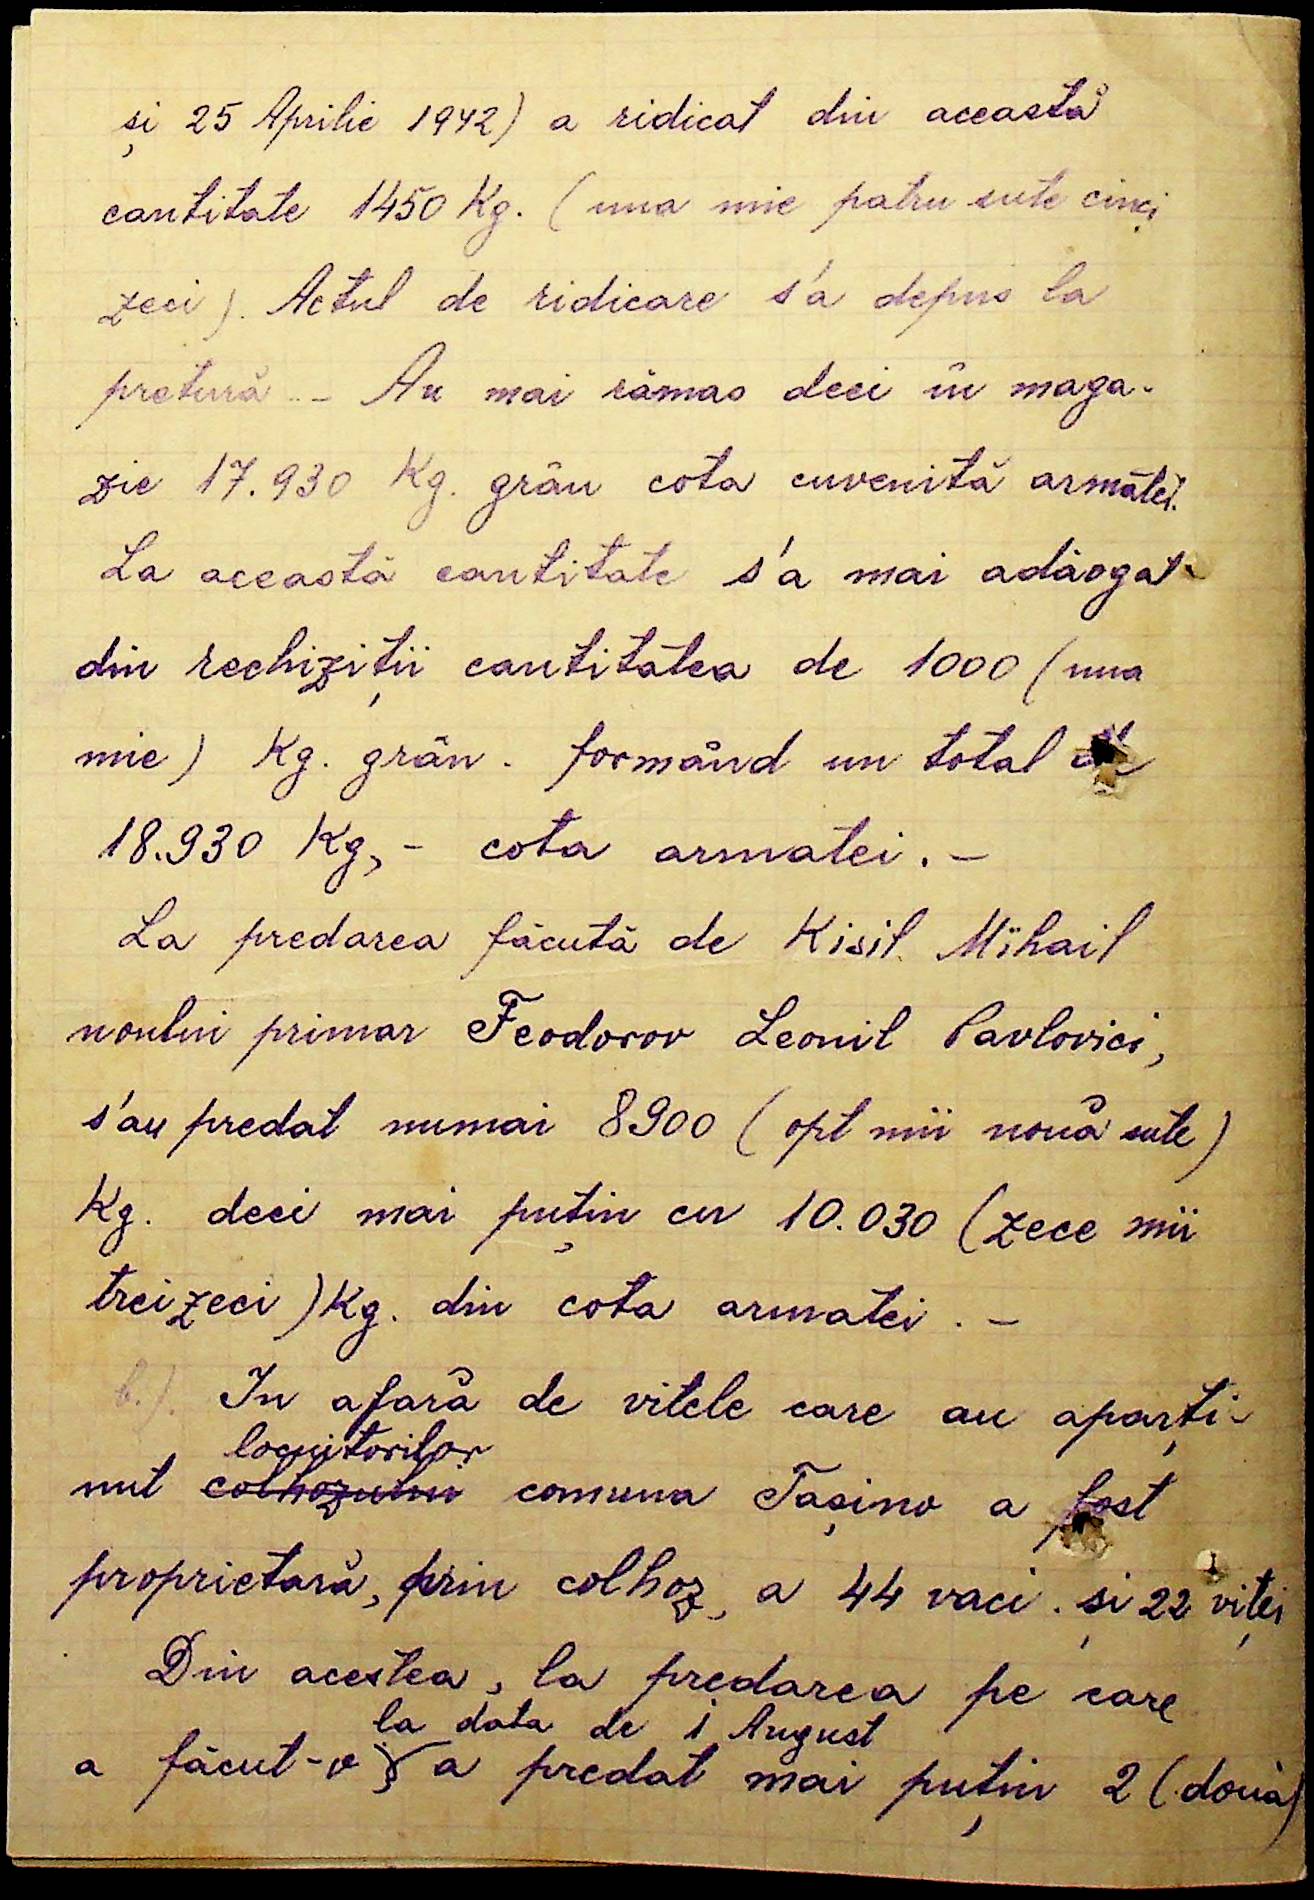 și 25 Aprilie 1942) a ridicat din această
cantitate 1450 Kg. (una mie patru sute cinci
zeci). Actul de ridicare s'a depus la
pretură. – Au mai rămas deci în maga-
zie 17.930 Kg. grâu cota cuvenită armatei.
La această cantitate s'a mai adăogat
din rechiziții cantitatea de 1000 (una
mie) Kg. grâu. formând un total de
18.930 Kg, – cota armatei. –
La predarea făcută de Kisil Mihail
noului primar Feodorov Leonil Pavlovici,
s'au predat numai 8900 (opt mii nouă sute)
Kg. deci mai puțin cu 10.030 (zece mii
treizeci) Kg. din cota armatei. –
b.). In afară de vitele care au aparți-
locuitorilor
nut colhozului comuna Tașino a fost
proprietară, prin colhoz, a 44 vaci. și 22 viței
Din acestea, la predarea pe care
la data de 1 August
a făcut-o a predat mai puțin 2 (două)